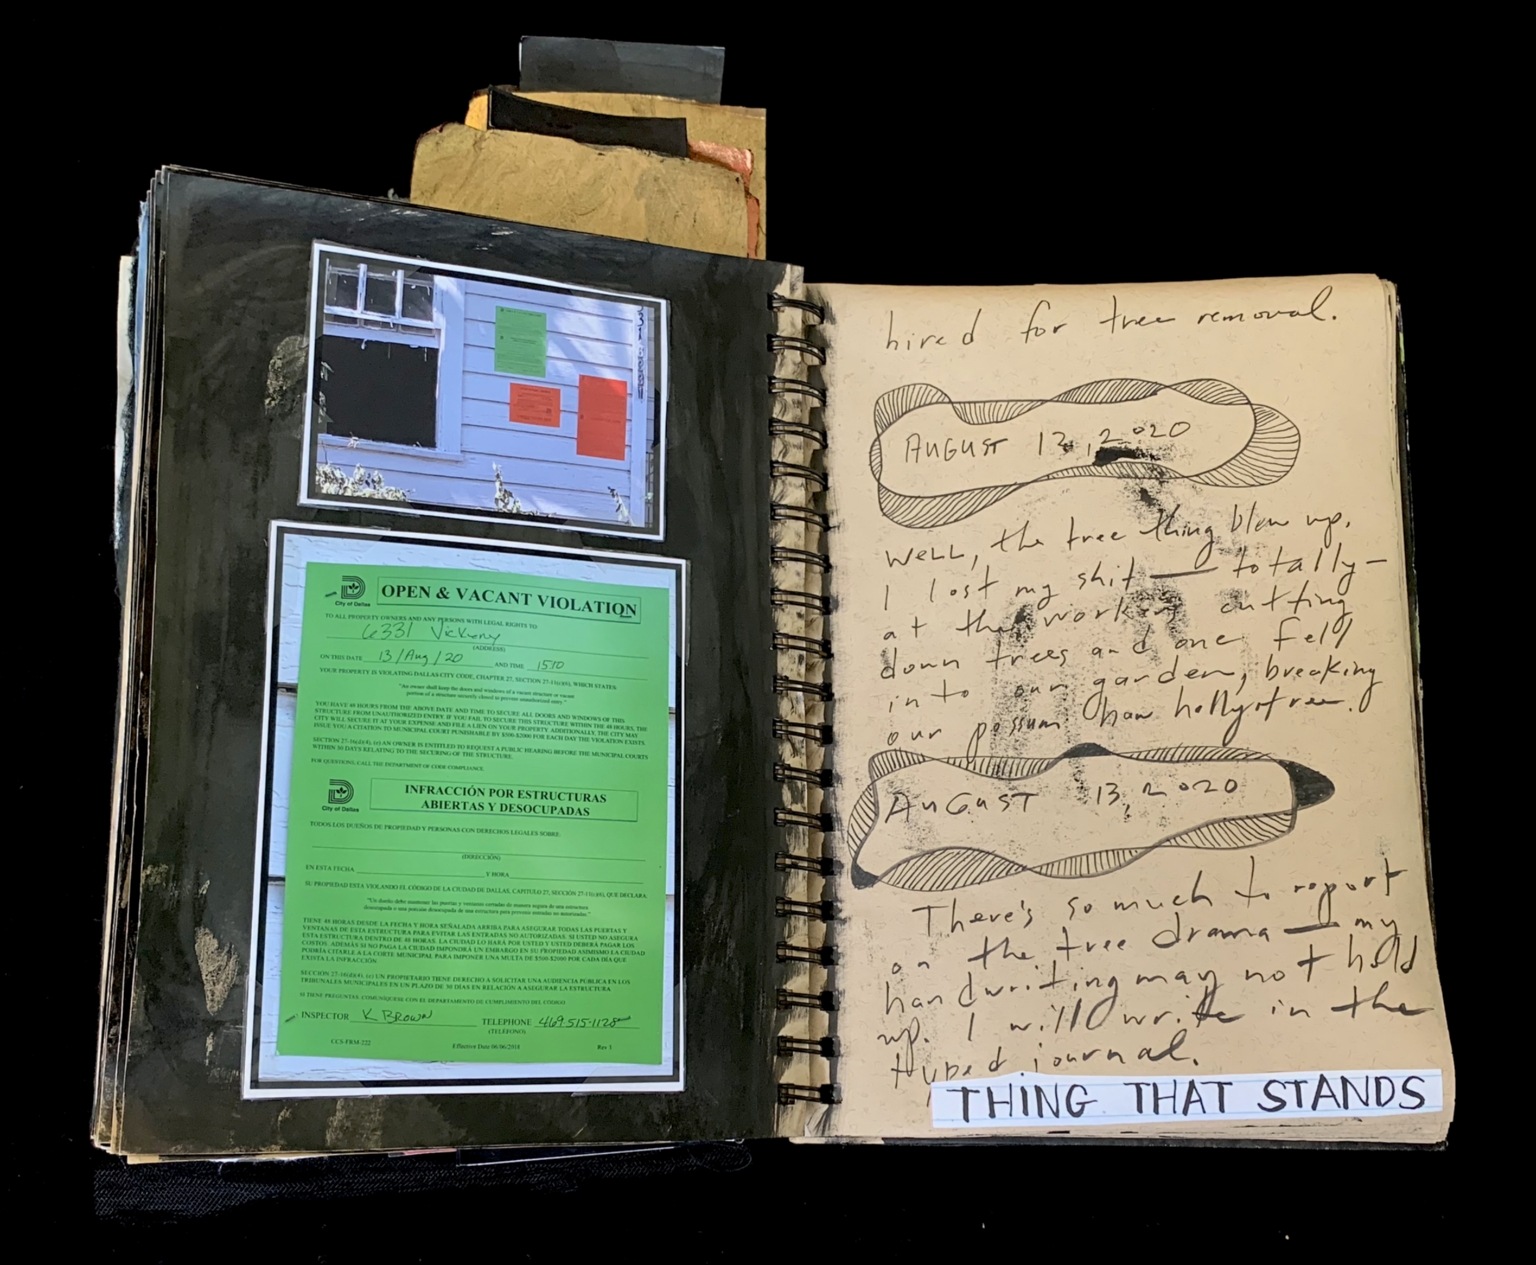 City of Dallas
OPEN & VACANT VIOLATION
TO ALL PROPERTY OWNERS AND ANY PERSONS WITH LEGAL RIGHTS TO:
6331 Vickery
(ADDRESS)
ON THIS DATE 13/Aug/20 AND TIME 1510
YOUR PROPERTY IS VIOLATING DALLAS CITY CODE, CHAPTER 27, SECTION 27-11(c)(6), WHICH STATES:
"An owner shall keep the doors and windows of a vacant structure or vacant
portion of a structure securely closed to prevent unauthorized entry."
YOU HAVE 48 HOURS FROM THE ABOVE DATE AND TIME TO SECURE ALL DOORS AND WINDOWS OF THIS
STRUCTURE FROM UNAUTHORIZED ENTRY. IF YOU FAIL TO SECURE THIS STRUCTURE WITHIN THE 48 HOURS, THE
CITY WILL SECURE IT AT YOUR EXPENSE AND FILE A LIEN ON YOUR PROPERTY. ADDITIONALLY, THE CITY MAY
ISSUE YOU A CITATION TO MUNICIPAL COURT PUNISHABLE BY $500-$2000 FOR EACH DAY THE VIOLATION EXISTS.
SECTION 27-16(d)(4), (c) AN OWNER IS ENTITLED TO REQUEST A PUBLIC HEARING BEFORE THE MUNICIPAL COURTS
WITHIN 30 DAYS RELATING TO THE SECURING OF THE STRUCTURE.
FOR QUESTIONS, CALL THE DEPARTMENT OF CODE COMPLIANCE
City of Dallas
INFRACCIÓN POR ESTRUCTURAS
ABIERTAS Y DESOCUPADAS
TODOS LOS DUEÑOS DE PROPIEDAD Y PERSONAS CON DERECHOS LEGALES SOBRE:
(DIRECCIÓN)
EN ESTA FECHA Y HORA
SU PROPIEDAD ESTA VIOLANDO EL CÓDIGO DE LA CIUDAD DE DALLAS, CAPITULO 27, SECCIÓN 27-11(c)(6), QUE DECLARA
"Un dueño debe mantener las puertas y ventanas cerradas de manera segura de una estructura
desocupada o una porción desocupada de una estructura para prevenir entradas no autorizadas."
TIENE 48 HORAS DESDE LA FECHA Y HORA SEÑALADA ARRIBA PARA ASEGURAR TODAS LAS PUERTAS Y
VENTANAS DE ESTA ESTRUCTURA PARA EVITAR LAS ENTRADAS NO AUTORIZADAS. SI USTED NO ASEGURA
ESTA ESTRUCTURA DENTRO DE 48 HORAS, LA CIUDAD LO HARÁ POR USTED Y USTED DEBERÁ PAGAR LOS
COSTOS. ADEMÁS SI NO PAGA LA CIUDAD IMPONDRÁ UN EMBARGO EN SU PROPIEDAD ASIMISMO LA CIUDAD
PODRÍA CITARLE A LA CORTE MUNICIPAL PARA IMPONER UNA MULTA DE $500-$2000 POR CADA DÍA QUE
EXISTA LA INFRACCIÓN.
SECCIÓN 27-16(d)(4), (c) UN PROPIETARIO TIENE DERECHO A SOLICITAR UNA AUDIENCIA PUBLICA EN LOS
TRIBUNALES MUNICIPALES EN UN PLAZO DE 30 DÍAS EN RELACIÓN A ASEGURAR LA ESTRUCTURA
SI TIENE PREGUNTAS, COMUNÍQUESE CON EL DEPARTAMENTO DE CUMPLIMIENTO DEL CÓDIGO
INSPECTOR K BROWN TELEPHONE 469 515-1128
(TELÉFONO)
CCS-FRM-222 Effective Date 06/06/2018 Rev 1
hired for tree removal.
AUGUST 13, 2020
WELL, the tree thing blew up.
I lost my shit — totally —
at the workers cutting
down trees and one fell
into our garden, breaking
our possum haw holly tree.
AUGUST 13, 2020
There's so much to report
on the tree drama — my
handwriting may not hold
up. I will write in the
typed journal.
THING THAT STANDS